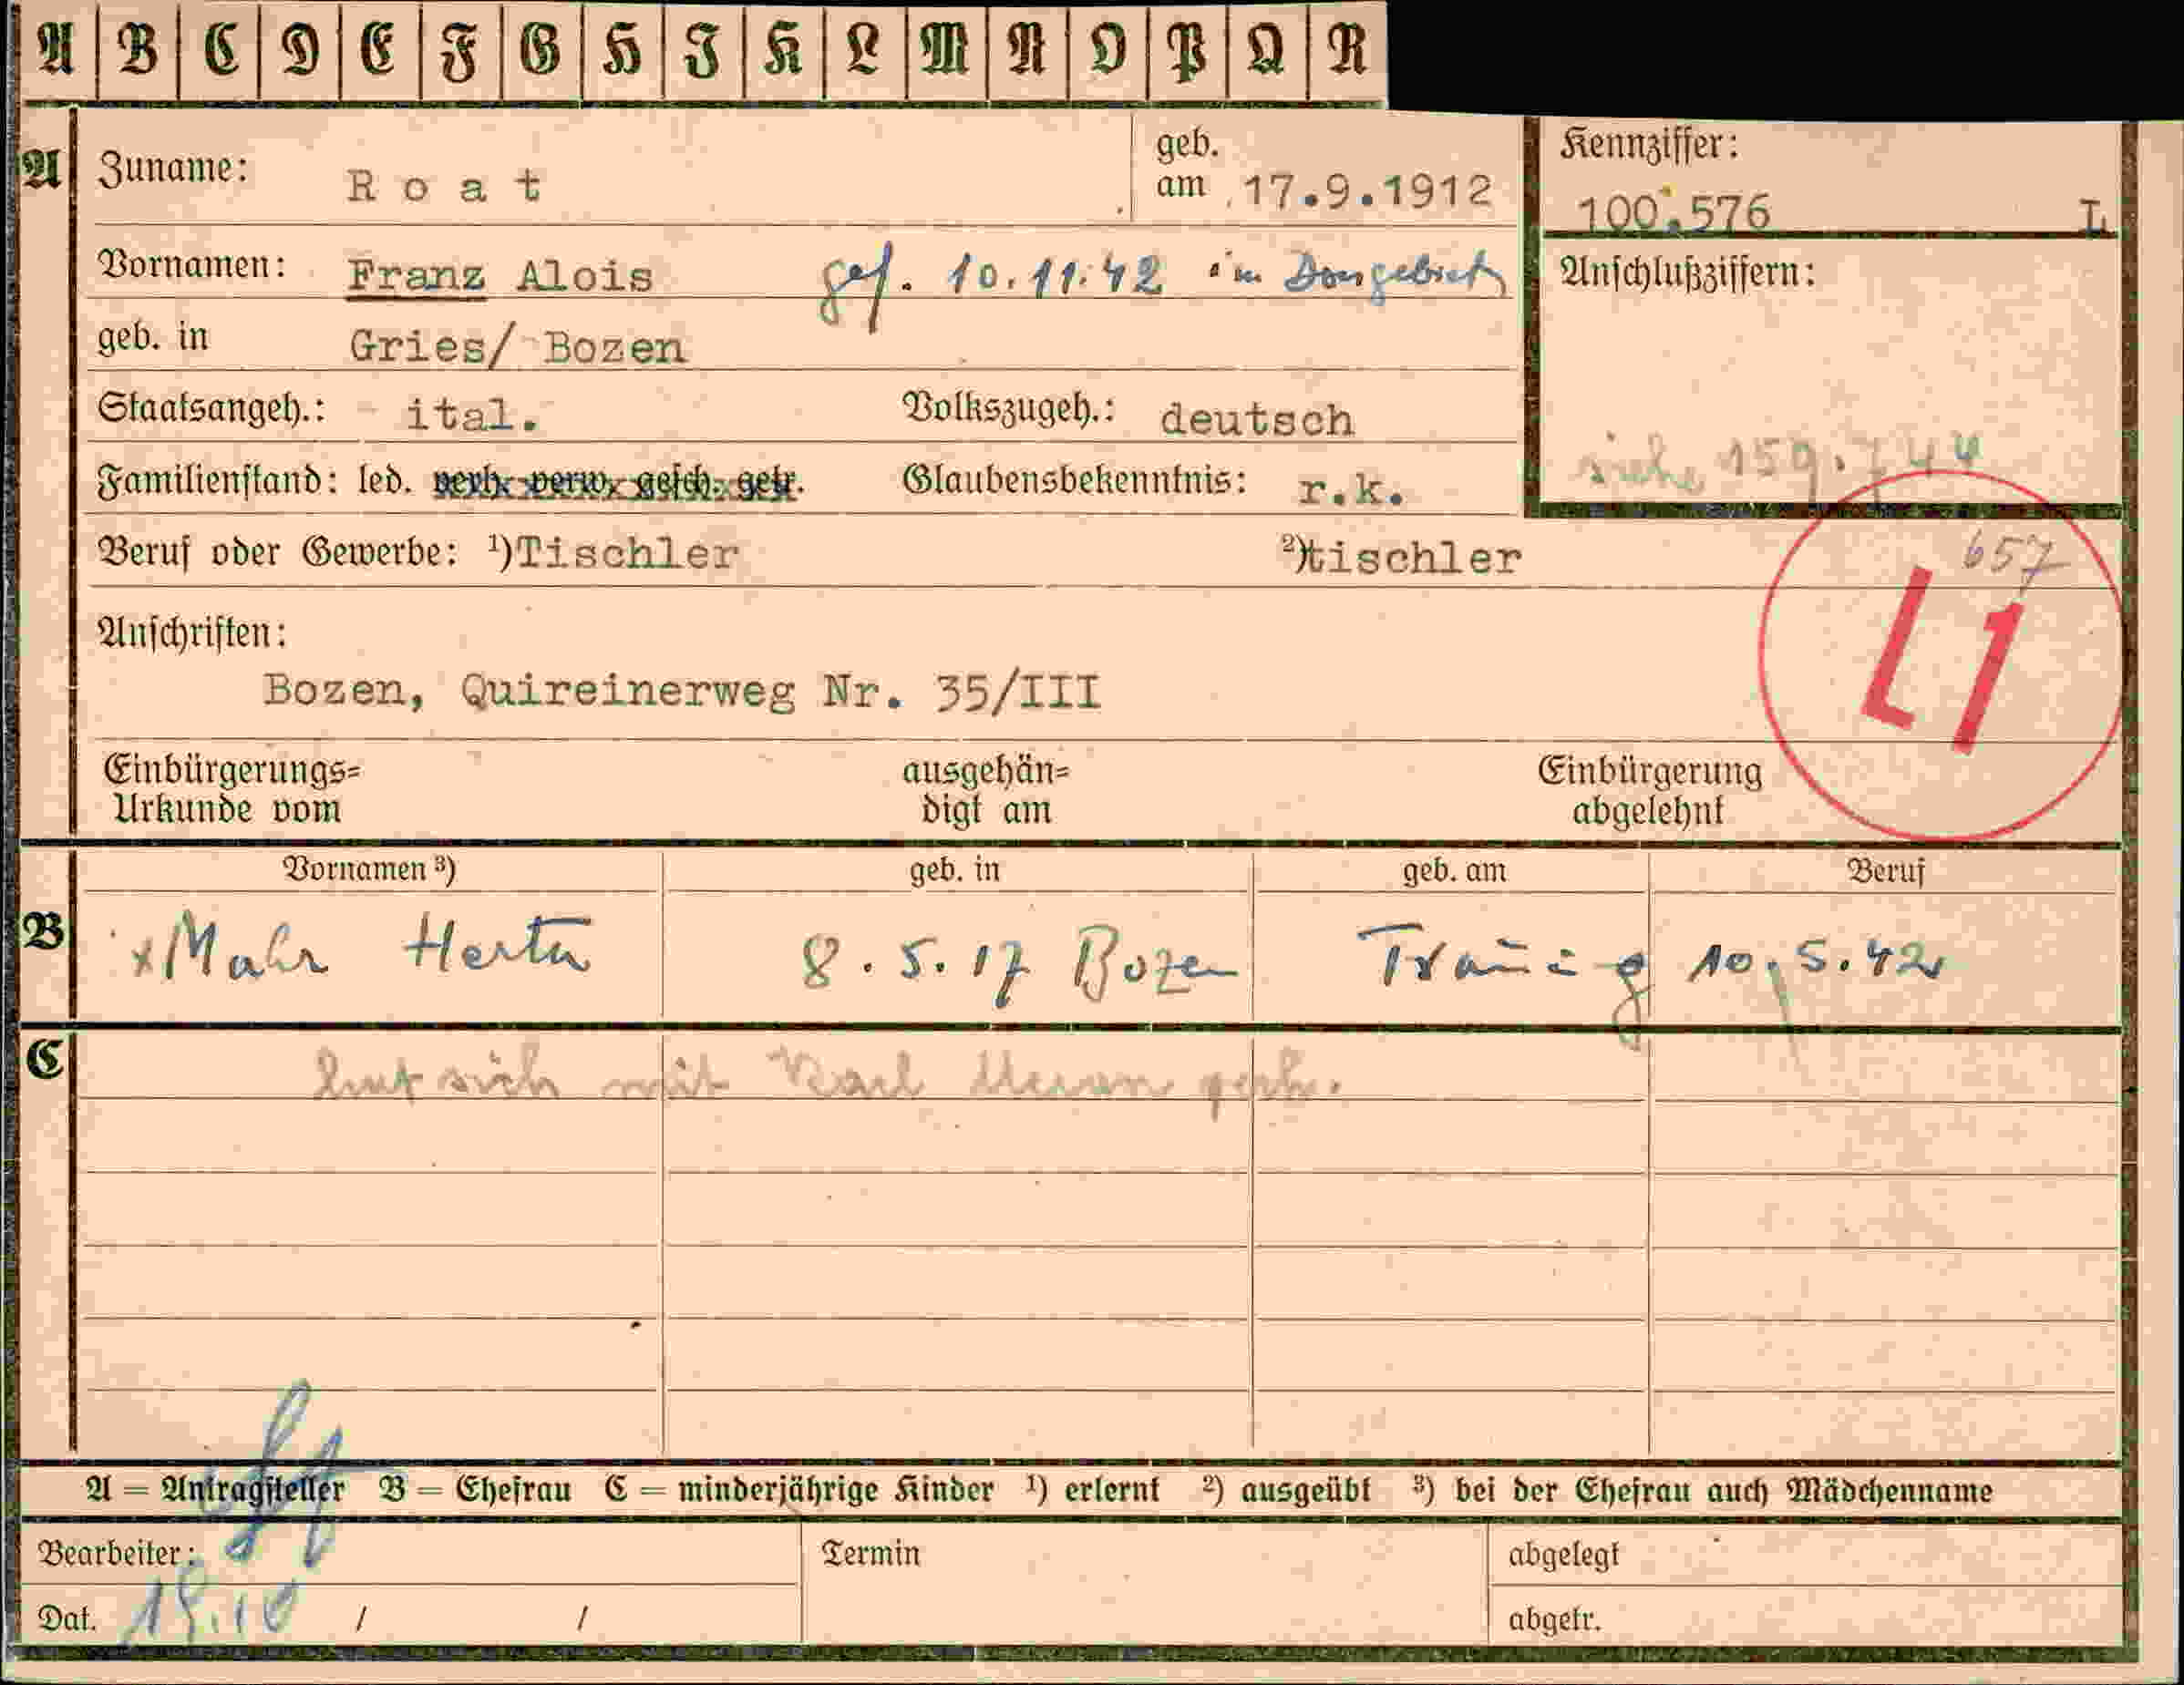 A B C D E F G H I K L M N O P Q R
A Zuname: Roat geb. am 17.9.1912 Kennziffer: 100.576 L
Vornamen: Franz Alois gef. 10.11.42 im Dongebiet Anschlußziffern:
geb. in Gries/ Bozen
Staatsangeh.: ital. Volkszugeh.: deutsch
siehe 159.744
Familienstand: led. verh. verw. gesch. getr. Glaubensbekenntnis: r.k.
Beruf oder Gewerbe: ¹)Tischler ²)tischler 657
L1
Anschriften:
Bozen, Quireinerweg Nr. 35/III
Einbürgerungs= ausgehän= Einbürgerung
Urkunde vom digt am abgelehnt
Vornamen ³) geb. in geb. am Beruf
B x Mahr Herta 8.5.17 Bozen Trauung 10.5.42
C hat sich mit Karl Meran verh.
A = Antragsteller B = Ehefrau C = minderjährige Kinder ¹) erlernt ²) ausgeübt ³) bei der Ehefrau auch Mädchenname
Bearbeiter: Termin abgelegt
Dat. 19.10 / / abgetr.